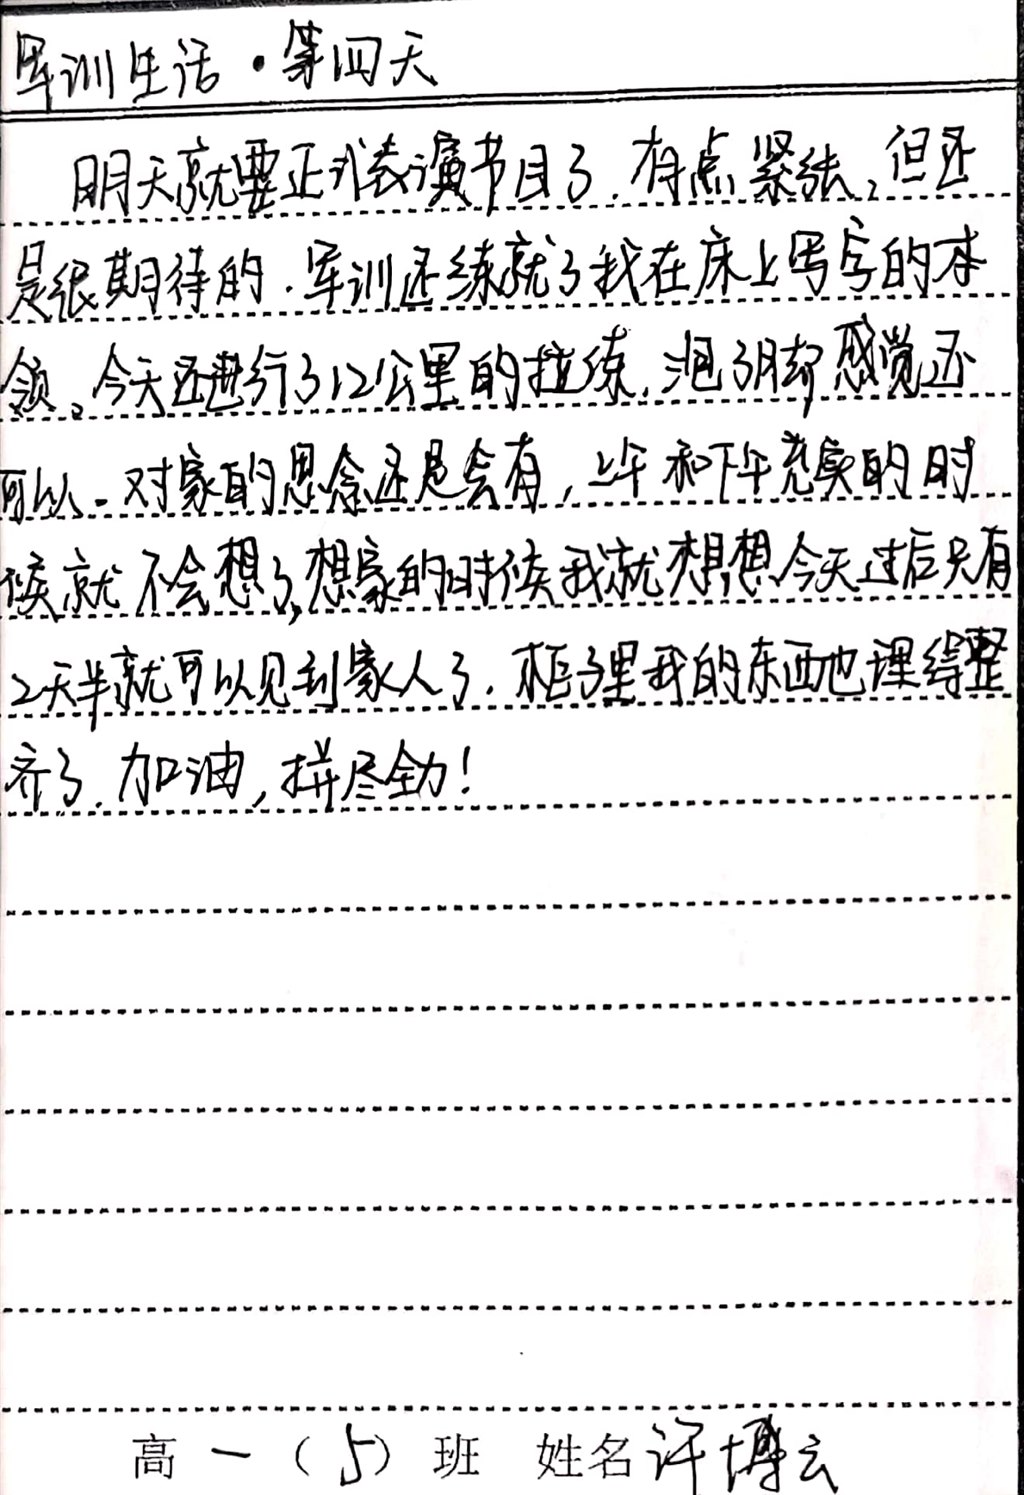 军训生活·第四天
明天就要正式表演节目了.有点紧张,但还
是很期待的.军训还练就了我在床上写字的本
领。今天还进行了12公里的拉练.泡了脚感觉还
可以.对家的思念还是会有,上午和下午充实的时
候就不会想了,想家的时候我就想想今天过后只有
2天半就可以见到家人了.柜子里我的东西也理得整
齐了.加油,拼尽全力!
高一(5)班 姓名许博云